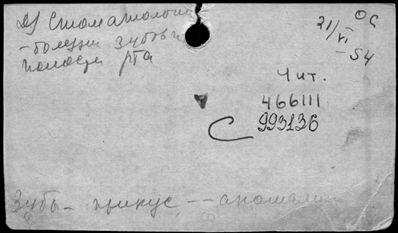 Стоматология
- болезни зубов и
полости рта
ОС
21/VI
- 54
Чит.
466111
С 993136
Зубы - прикус -- аномалии